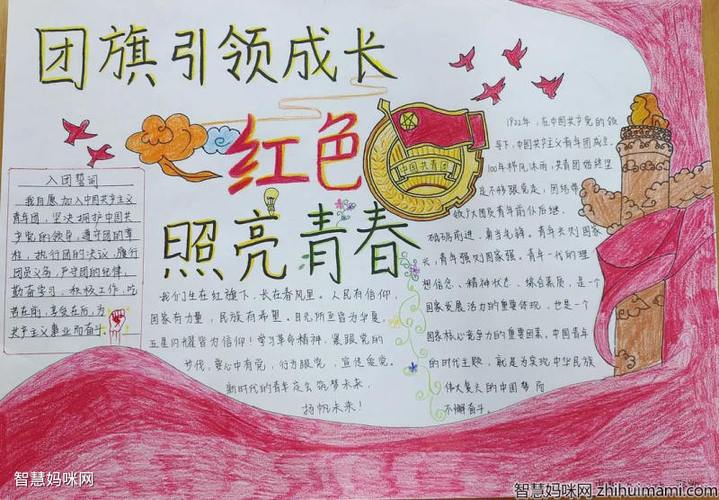 团旗引领成长
红色
照亮青春
中国共青团
入团誓词
我自愿加入中国共产主义
青年团，坚决拥护中国共
产党的领导，遵守团的章
程，执行团的决议，履行
团员义务，严守团的纪律，
勤奋学习，积极工作，吃
苦在前，享受在后，为
共产主义事业而奋斗。
我们生在红旗下，长在春风里。人民有信仰，
国家有力量，民族有希望。目光所至皆为华夏，
五星闪耀皆为信仰！学习革命精神，紧跟党的
步伐，要心中有党，行为跟党，宣传爱党。
新时代的青年定会筑梦未来，
扬帆未来！
1922年，在中国共产党的领
导下，中国共产主义青年团成立。
100年栉风沐雨，共青团始终坚
定不移跟党走，团结带
领广大团员青年前仆后继、
砥砺前进，勇当先锋。青年兴则国家
兴，青年强则国家强。青年一代的理
想信念、精神状态、综合素质，是一个
国家发展活力的重要体现，也是一个
国家核心竞争力的重要因素。中国青年
的时代主题，就是为实现中华民族
伟大复兴的中国梦而
不懈奋斗。
智慧妈咪网
智慧妈咪网 zhihuimami.com